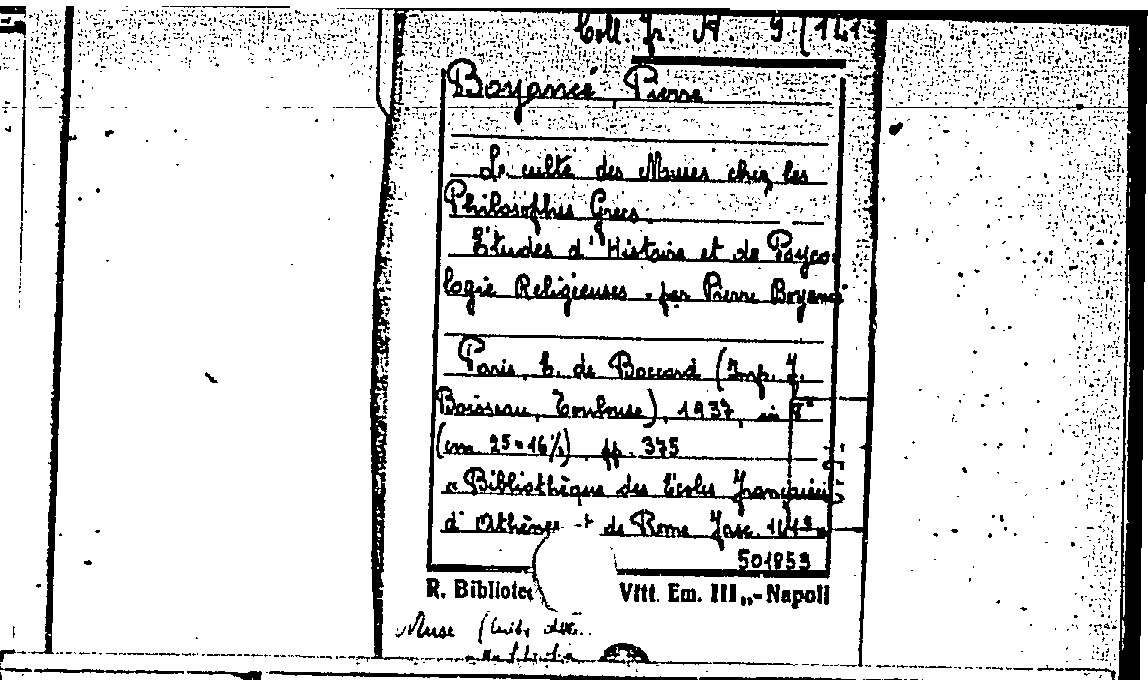 Coll. fr. A. 9 (141
Boyancé Pierre
Le culte des Muses chez les
Philosophes Grecs.
Études d'Histoire et de Psyco-
logie Religieuses - par Pierre Boyancé
Paris, E. de Boccard (Imp. J.
Boisseau, Toulouse), 1937, in 8°
(cm. 25×16½) pp. 375
« Bibliothèque des Écoles françaises
d'Athènes et de Rome fasc. 141e »
501853
R. Bibliote Vitt. Em. III„-Napoli
Muse